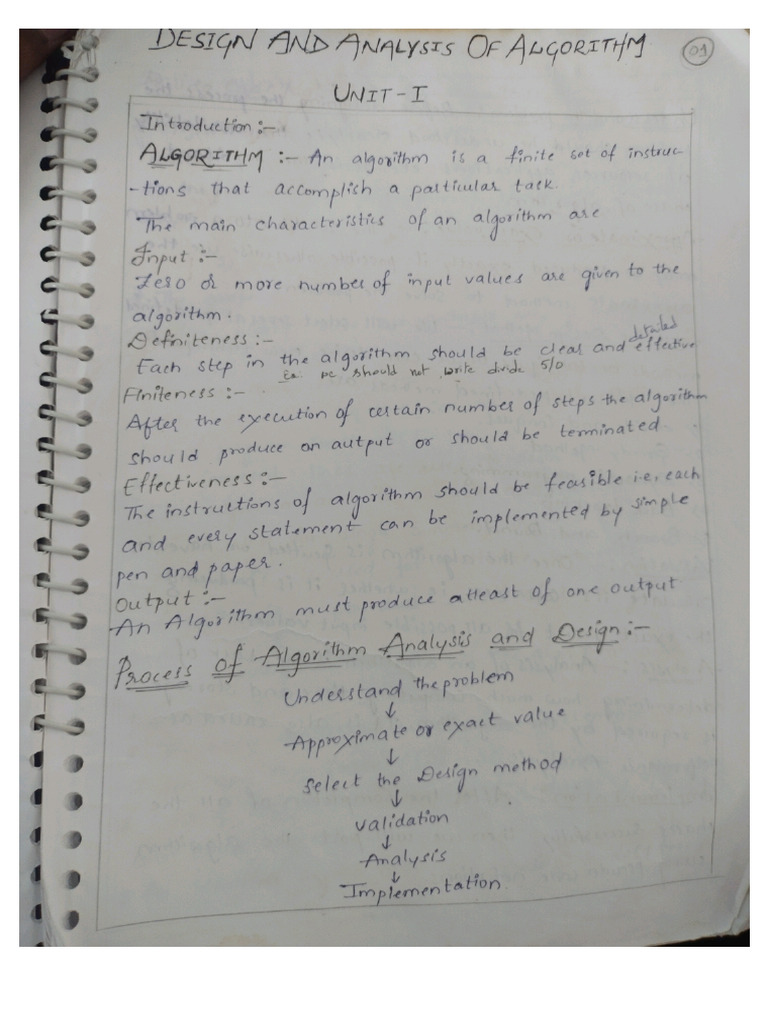 DESIGN AND ANALYSIS OF ALGORITHM
01
UNIT-I
Introduction:-
ALGORITHM :- An algorithm is a finite set of instruc-
-tions that accomplish a particular task.
The main characteristics of an algorithm are
Input :-
Zero or more number of input values are given to the
algorithm.
Definiteness :-
detailed
Each step in the algorithm should be clear and effective
Ex. we should not write divide 5/0
Finiteness :-
After the execution of certain number of steps the algorithm
should produce an autput or should be terminated
Effectiveness :-
The instructions of algorithm should be feasible i.e, each
and every statement can be implemented by simple
pen and paper.
Output :-
An Algorithm must produce atleast of one output
Process of Algorithm Analysis and Design :-
Understand the problem
↓
Approximate or exact value
↓
Select the Design method
↓
validation
↓
Analysis
↓
Implementation